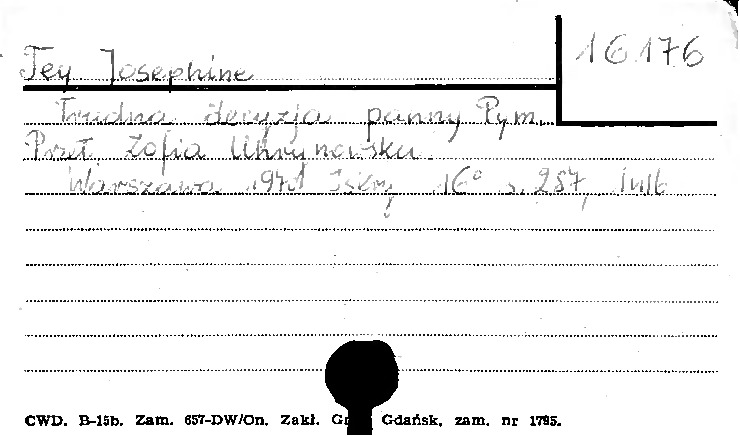 16176
Tey Josephine
Trudna decyzja panny Pym.
Przeł. Zofia Uhrynowska.
Warszawa 1971 Iskry 16° s. 287,
CWD. B-15b. Zam. 657-DW/On. Zakł. Gdańsk, zam. nr 1795.